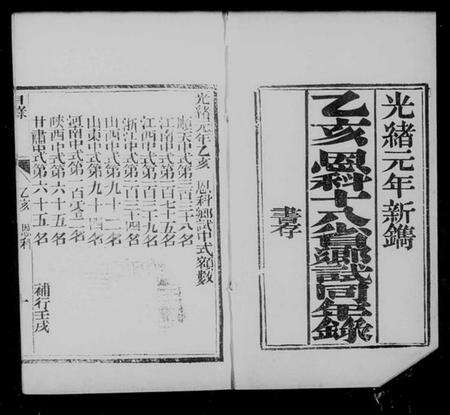 光緒元年新鐫
乙亥恩科十八省鄉試同年錄
書存
光緒元年乙亥 恩科鄉試中式額數
順天中式第三百二十八名
江南中式第一百七十五名
江西中式第一百三十九名
浙江中式第一百三十四名
山西中式第九十一名
山東中式第九十四名
河南中式第一百零一名
陝西中式第六十五名
甘肅中式第六十五名
補行壬戌
目錄
乙亥 恩科
一